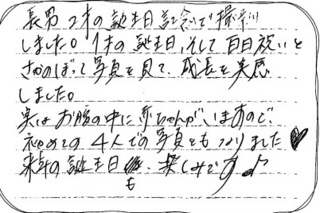 長男2才の誕生日記念で撮影
しました。1才の誕生日,そして百日祝いと
さかのぼって写真を見て、成長を実感
しました。
実はお腹の中に赤ちゃんがいますので、
初めての4人での写真ともなりました♥
来年の誕生日も、楽しみです♪